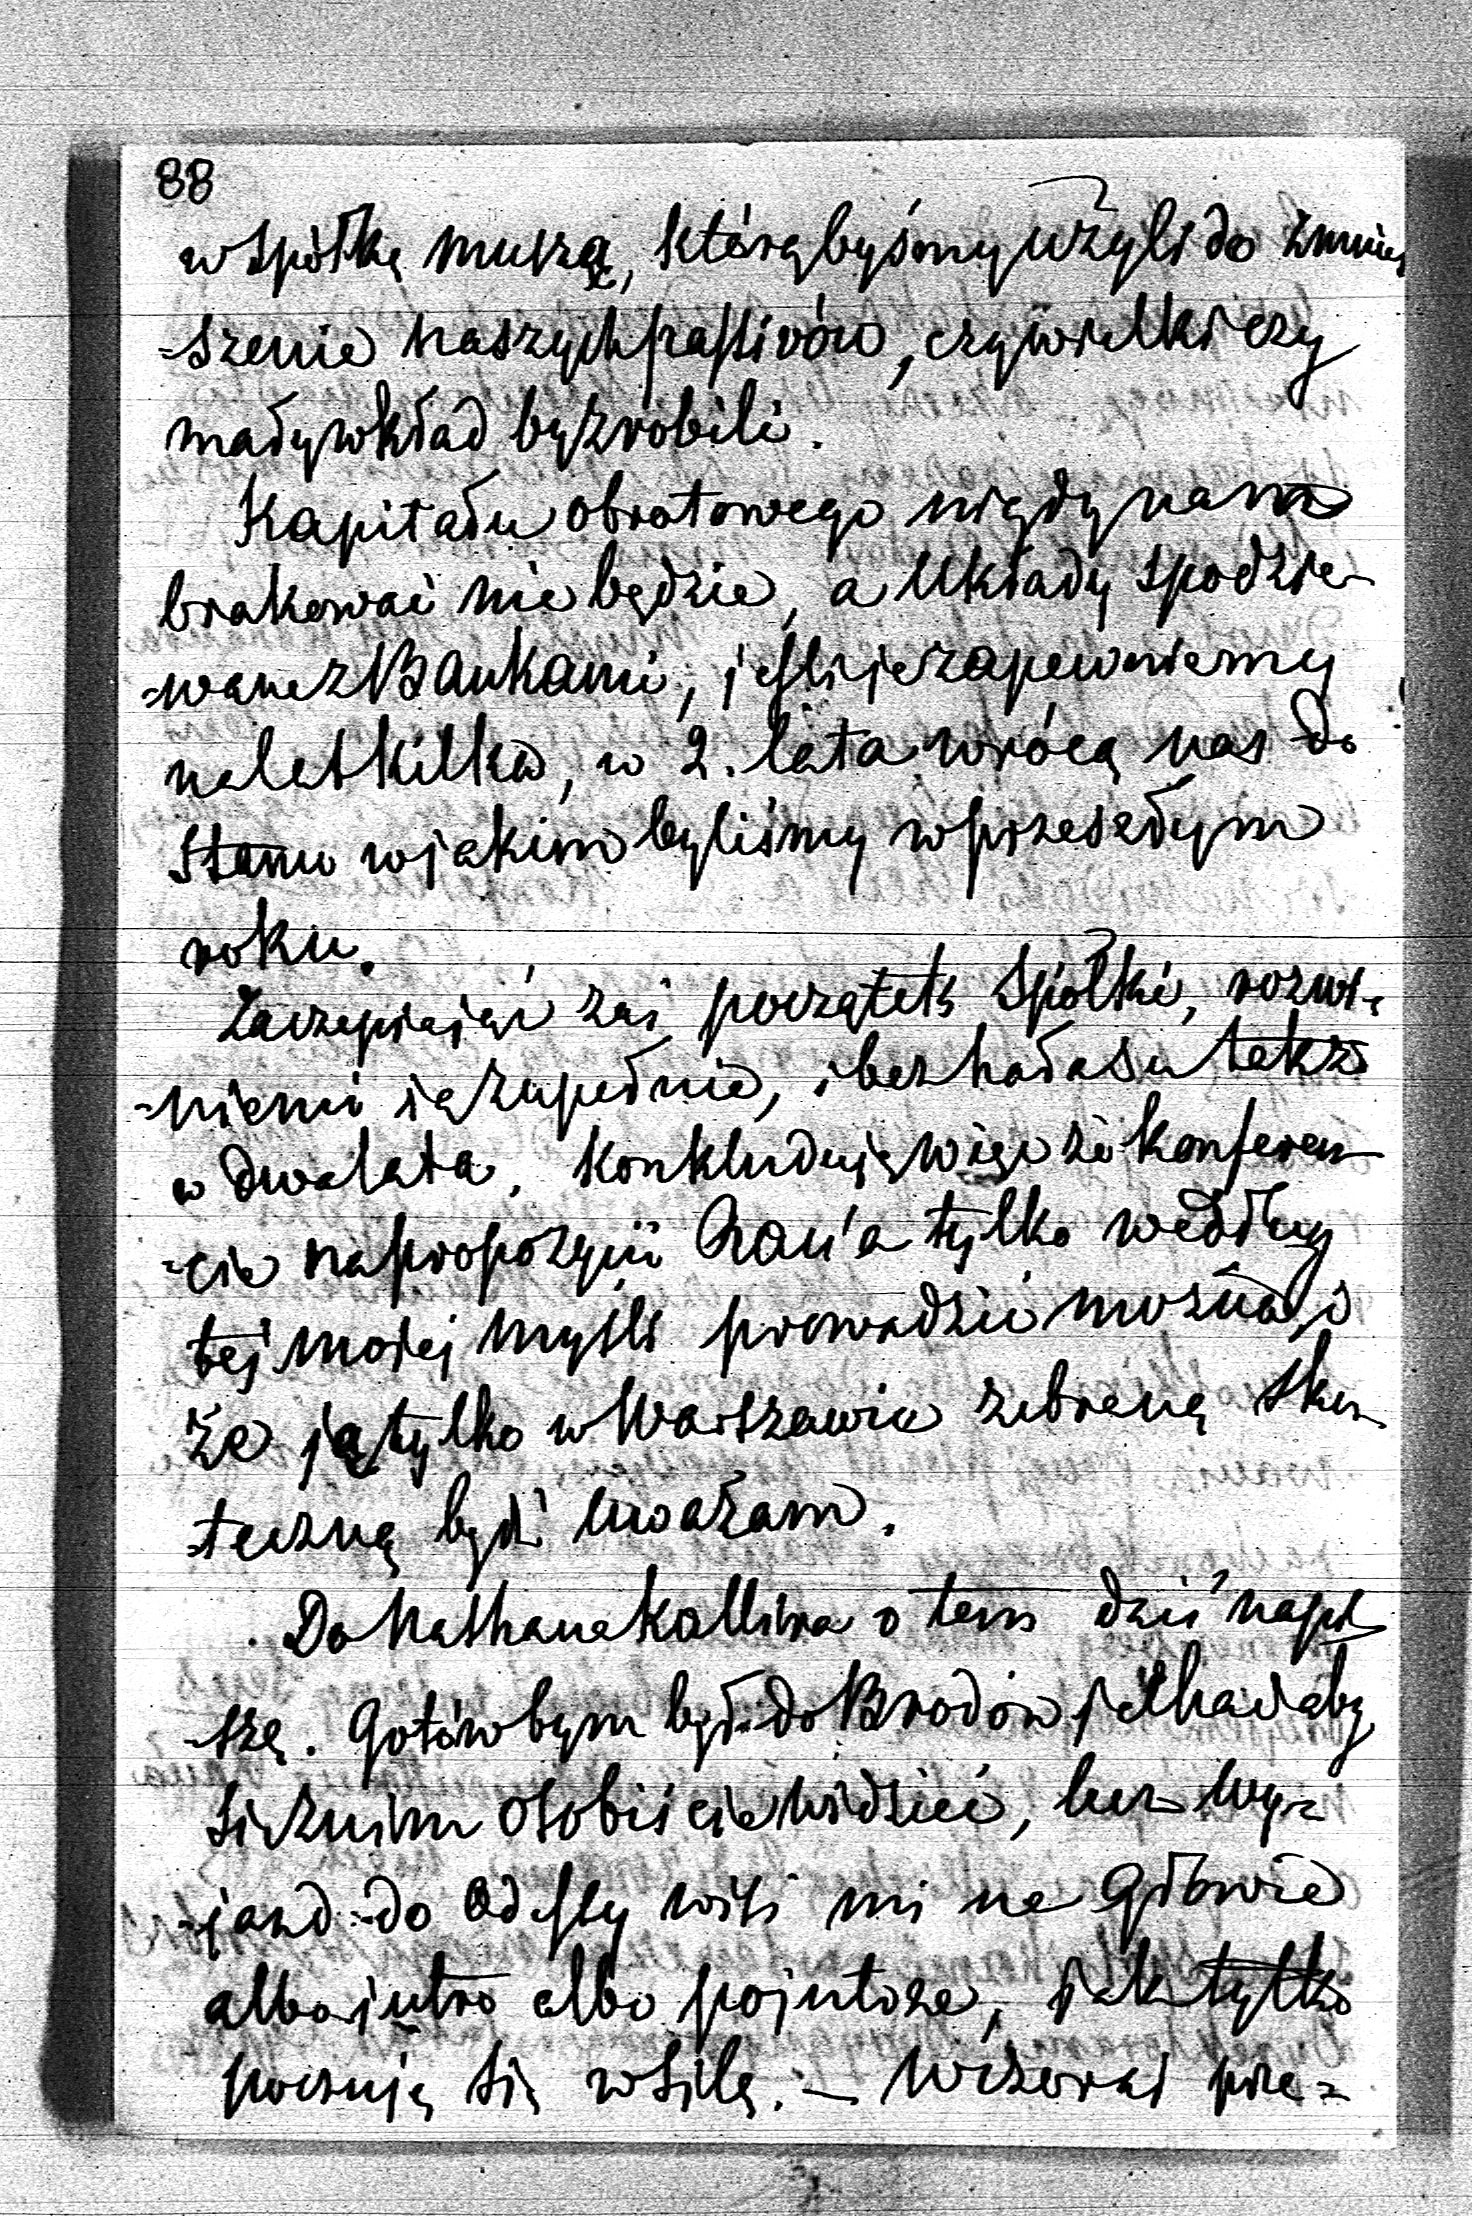 88
w spółkę muszą, którąbyśmy użyli do zmniej
-szenia naszych passivów, czy wielki czy
mały wkład by zrobili.
Kapitału obrotowego nigdy nam
brakować nie będzie, a układy spodzie-
-wane z Bankami, jeśli je zapewniemy
na lat kilka, w 2. lata wrócą nas do
stanu w jakim byliśmy w przeszłym
roku.
zaś początek Spółki, rozwi-
się zupełnie, i bez hałasu także
w dwa lata. Konkluduję więc że konferen-
-cie na propozycii tylko według
tej mojej myśli prowadzić można, i
że ją tylko w Warszawie zebraną sku-
-teczną być uważam.
Do Nathana Kallira o tem dziś napi-
-szę. Gotów bym był do Brodów jechać aby
się z nim osobiście widzieć, lecz wy-
-jazd do Odessy wisi mi na głowie
albo jutro albo pojutrze, jak tylko
poczuję się w sile. — Wczoraj prze-